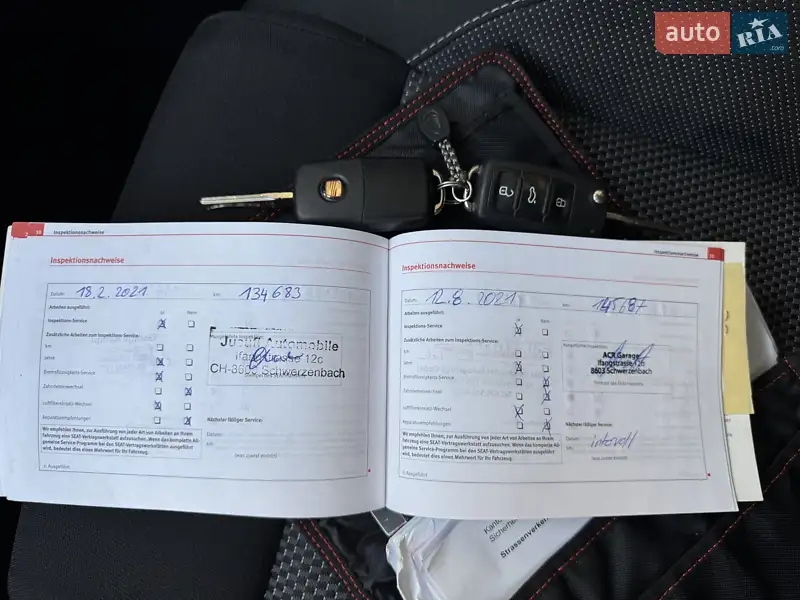 auto RIA .com
Inspektionsnachweise
Inspektionsnachweise
Datum: 18.2.2021 km: 134683
Arbeiten ausgeführt: Ja Nein
Inspektions-Service
Zusätzliche Arbeiten zum Inspektions-Service:
km
Jahre
Bremsflüssigkeits-Service
Zahnriemenwechsel
Luftfiltereinsatz-Wechsel
Reparaturempfehlungen
Jusufi Automobile
Ifangstrasse 12c
CH-8603 Schwerzenbach
Nächster fälliger Service:
Datum:
km:
(was zuerst eintritt)
Wir empfehlen Ihnen, zur Ausführung von jeder Art von Arbeiten an Ihrem
Fahrzeug eine SEAT-Vertragswerkstatt aufzusuchen. Wenn das komplette All-
gemeine Service-Programm bei den SEAT-Vertragswerkstätten ausgeführt
wird, bedeutet dies einen Mehrwert für Ihr Fahrzeug.
Inspektionsnachweise
Inspektionsnachweise
Datum: 12.8.2021 km: 145687
Arbeiten ausgeführt: Ja Nein
Inspektions-Service
Zusätzliche Arbeiten zum Inspektions-Service:
km
Jahre
Bremsflüssigkeits-Service
Zahnriemenwechsel
Luftfiltereinsatz-Wechsel
Reparaturempfehlungen
ACR Garage
Ifangstrasse 12c
8603 Schwerzenbach
Nächster fälliger Service:
Datum:
km:
(was zuerst eintritt)
Wir empfehlen Ihnen, zur Ausführung von jeder Art von Arbeiten an Ihrem
Fahrzeug eine SEAT-Vertragswerkstatt aufzusuchen. Wenn das komplette All-
gemeine Service-Programm bei den SEAT-Vertragswerkstätten ausgeführt
wird, bedeutet dies einen Mehrwert für Ihr Fahrzeug.
Strassenverke